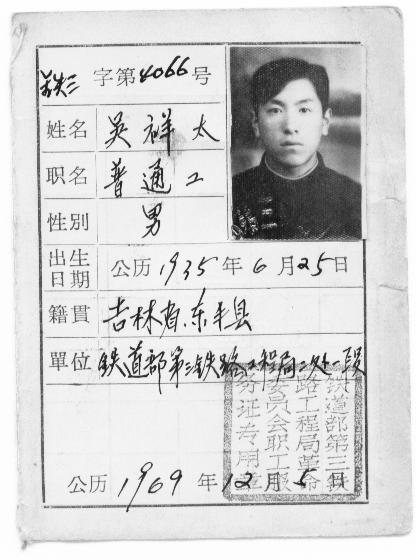 字第4066号
姓名 吴祥太
职名 普通工
性别 男
出生日期 公历1935年6月25日
籍贯 吉林省东丰县
單位 铁道部第三铁路工程局二处一段
铁道部第三铁
路工程局革命
委员会职工
证专用章
公历1969年12月5日